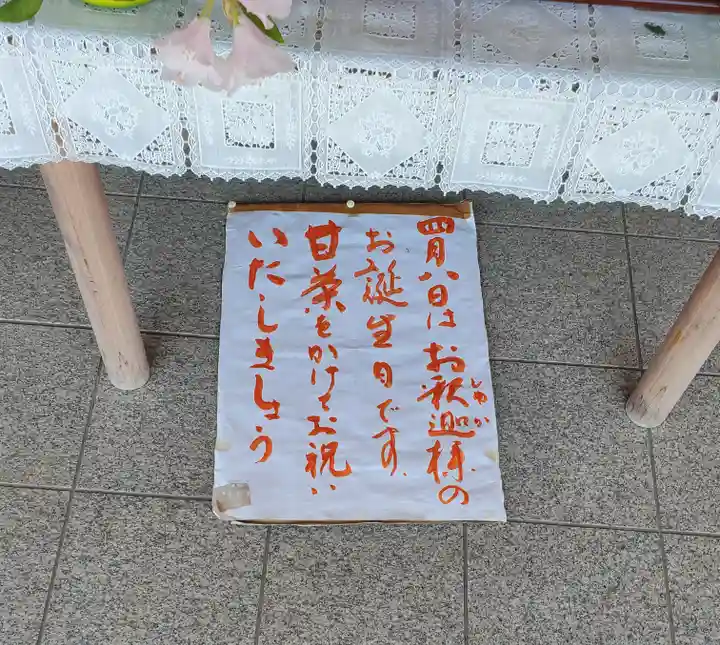 四月八日はお釈迦様の
しゃか
お誕生日です。
甘茶をかけてお祝い
いたしましょう